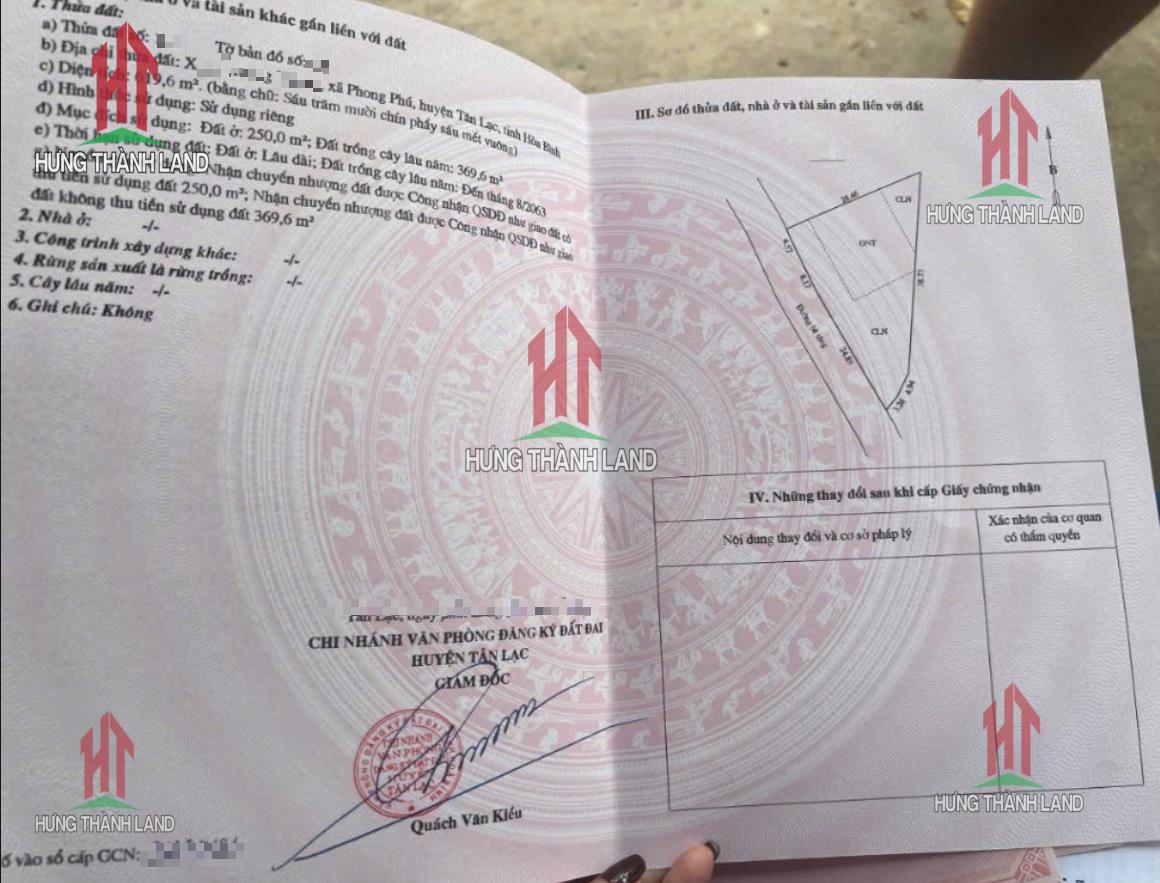 ở và tài sản khác gắn liền với đất
1. Thửa đất:
a) Thửa đất số: Tờ bản đồ số:
b) Địa chỉ thửa đất: X xã Phong Phú, huyện Tân Lạc, tỉnh Hòa Bình
c) Diện tích: 619,6 m². (bằng chữ: Sáu trăm mười chín phẩy sáu mét vuông)
d) Hình thức sử dụng: Sử dụng riêng
đ) Mục đích sử dụng: Đất ở: 250,0 m²; Đất trồng cây lâu năm: 369,6 m²
e) Thời hạn sử dụng đất: Đất ở: Lâu dài; Đất trồng cây lâu năm: Đến tháng 8/2063
Nhận chuyển nhượng đất được Công nhận QSDĐ như giao đất có
thu tiền sử dụng đất 250,0 m²; Nhận chuyển nhượng đất được Công nhận QSDĐ như giao
đất không thu tiền sử dụng đất 369,6 m²
2. Nhà ở: -/-
3. Công trình xây dựng khác: -/-
4. Rừng sản xuất là rừng trồng: -/-
5. Cây lâu năm: -/-
6. Ghi chú: Không
CHI NHÁNH VĂN PHÒNG ĐĂNG KÝ ĐẤT ĐAI
HUYỆN TÂN LẠC
GIÁM ĐỐC
CHI NHÁNH
VĂN PHÒNG
ĐĂNG KÝ ĐẤT ĐAI
HUYỆN
TÂN LẠC
Quách Văn Kiều
số vào sổ cấp GCN:
III. Sơ đồ thửa đất, nhà ở và tài sản gắn liền với đất
B
CLN
ONT
4.57
8.37
CLN
Đường bê tông
24.89
4.94
3.26
IV. Những thay đổi sau khi cấp Giấy chứng nhận
Nội dung thay đổi và cơ sở pháp lý
Xác nhận của cơ quan
có thẩm quyền
HƯNG THÀNH LAND
HƯNG THÀNH LAND
HƯNG THÀNH LAND
HƯNG THÀNH LAND
HƯNG THÀNH LAND